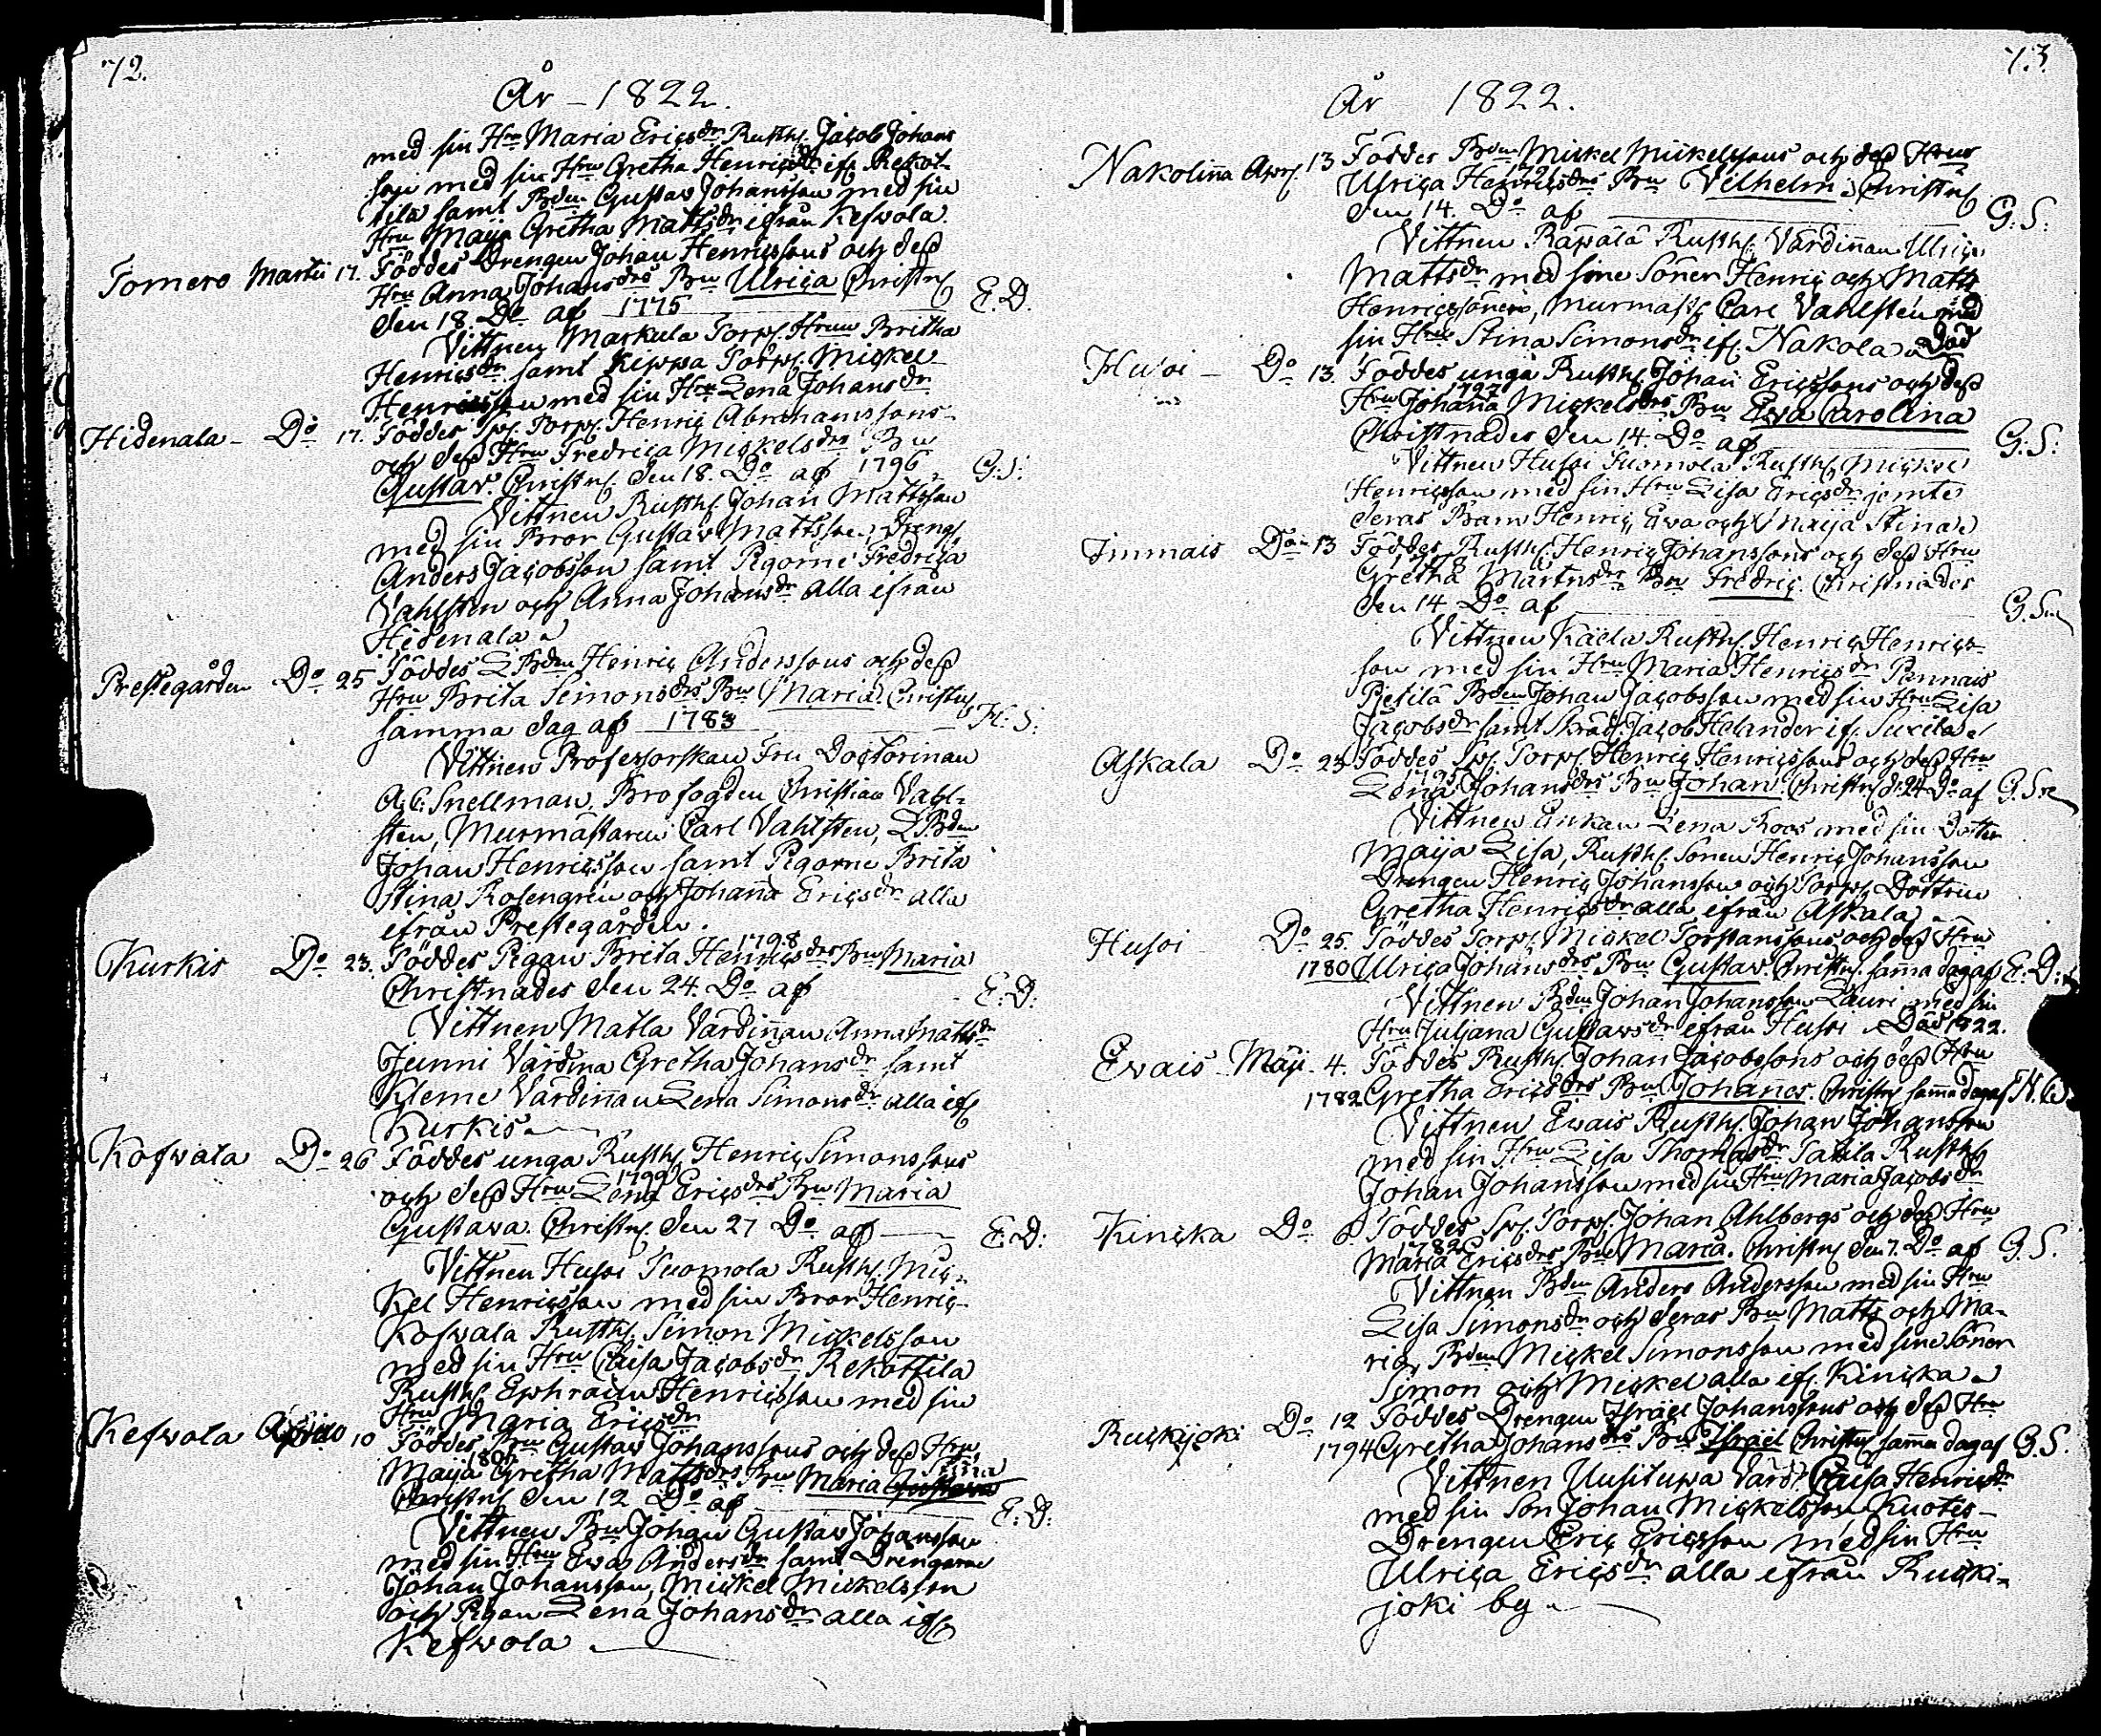 72.
År - 1822.
med sin Hru Maria Ericsdr Rusth. Jacob Johans
son med sin Hru Gretha Henricsdr if. Rekot-
tila samt Bden Gustav Johansson med sin
Hru Maija Gretha Mattsdr ifrån Kefwola.
Tomero Martii 17. Föddes Drengen Johan Henricssons och dess
Hru Anna Johansdrs Bn Ulrica Christn.
den 18. Do af 1775 E. D.
Vittnen Markula Torp. Hrun Britha
Henricsdr samt Keppa Torp. Mickel
Henricsson med sin Hru Lena Johansdr
Hidenala - Do 17. Föddes Sp. Torp. Henric Abrahamssons
och dess Hru Fredrica Mickelsdrs Bn
Gustav. Christn. den 18. Do af 1796 G. S:
Vittnen Rusth. Johan Mattsson
med sin Bror Gustav Mattsson, Dreng.
Anders Jacobsson samt Pigorne Fredrica
Vahlsten och Anna Johansdr alla ifrån
Hidenala
Prestegården Do 25 Föddes LBden Henric Anderssons och dess
Hru Brita Simonsdrs Bn Maria. Christn.
samma dag af 1783 H: S:
Vittnen Professorskan Fru Doctorinan
A. C. Snellman, Brofogden Christian Vahl-
sten, Murmästaren Carl Vahlsten, LBden
Johan Henricsson samt Pigorne Brita
Stina Rosengren och Johanna Ericsdr alla
ifrån Prestegården.
1798
Kurkis Do 23. Föddes Pigan Brita Henricsdrs Bn Maria
Christnades den 24. Do af E. D:
Vittnen Matla Värdinnan Anna Mattsdr
Junni Värdina Gretha Johansdr samt
Kleme Värdinnan Lena Simonsdr alla if.
Kurkis
Kofwala Do 26 Föddes unga Rusth. Henric Simonssons
1799
och dess Hru Lena Ericsdrs Bn Maria
Gustava. Christn. den 27 Do af E. D:
Vittnen Husoi Tuomola Rusth. Mic-
kel Henricsson med sin Bror Henric
Kofwala Rusth. Simon Mickelsson
med sin Hru Caisa Jacobsdr Rekottila
Rusth. Ephraim Henricsson med sin
Hru Maria Ericsdr
Kefwola Aprilis 10 Föddes Bn Gustav Johanssons och dess Hru
Stina
Maija Gretha Mattsdrs Bn Maria Gustava
Christn. den 12 Do af E. D:
Vittnen Bn Johan Gustav Johansson
med sin Hru Eva Andersdr samt Drengarne
Johan Johansson, Mickel Mickelsson
och Pigan Lena Johansdr alla if.
Kefwola
73.
År 1822.
Nakolinna Apr. 13 Föddes Bden Mickel Mickelssons och dess Hrus
Ulrica Henricsdrs Bn Vilhelm. Christn.
den 14. Do af G. S:
Vittnen Räpälä Rusth. Värdinnan Ulrica
Mattsdr med sine Söner Henric och Matts
Henricssöner, Murmäst. Carl Vahlsten med
sin Hru Stina Simonsdr if. Nakola. Död
Husoi - Do 13. Föddes unga Rusth. Johan Ericssons och dess
1797
Hru Johana Mickelsdrs Bn Ewa Carolina
Christnades den 14. Do af G. S:
Vittnen Husoi Tuomola Rusth. Mickel
Henricsson med sin Hru Lisa Ericsdr jemte
deras Barn Henric, Eva och Maija Stina
Immais Do 13 Föddes Rusth. Henric Johanssons och dess Hru
Gretha Mårtensdrs Bn Fredric. Christnades
den 14 Do af
Vittnen Käela Rusth. Henric Henrics-
son med sin Hru Maria Henricsdr Pennais
Pietilä Bden Johan Jacobsson med sin Hru Lisa
Jacobsdr samt Skräd. Jacob Helander if. Suxela
Askala Do 23 Föddes Sp. Torp. Henric Henricssons och dess Hru
Lena Johansdrs Bn Johan. Christn. d. 24 Do af
Vittnen Enkan Lena Roos med sin Dotter
Maija Lisa, Rusth. Sonen Henric Johansson
Drengen Henric Johansson och Torp. Dottren
Gretha Henricsdr alla ifrån Askala
Husoi Do 25. Föddes Torp. Mickel Torstanssons och dess Hru
1780 Ulrica Johansdrs Bn Gustav. Christn. samma dag af E. D:
Vittnen Bden Johan Johansson Lauri med sin
Hru Juliana Gustavsdr ifrån Husoi. Död 1822.
Evais Maji 4. Föddes Rusth. Johan Jacobssons och dess Hru
1782 Gretha Ericsdrs Bn Johanes. Christn. samma dag af
Vittnen Evais Rusth. Johan Johansson
med sin Hru Lisa Thomasdr Tahila Rusth.
Johan Johansson med sin Hru Maria Jacobsdr
Kincka Do 6. Föddes Sp. Torp. Johan Ahlbergs och dess Hru
1782
Maria Ericsdrs Bn Maria. Christn. den 7. Do af G. S.
Vittnen Bden Anders Andersson med sin Hru
Lisa Simonsdr och deras Bn Matts och Ma-
ria, Bden Mickel Simonsson med sine Söner
Simon och Mickel alla if. Kincka
Ruckijoki Do 12 Föddes Drengen Israel Johanssons och dess Hru
1794 Gretha Johansdrs Bn Israel Christn. samma dag af G. S.
Vittnen Uusitupa Värd. Caisa Henricsdr
med sin Son Johan Mickelsson Kuotis
Drengen Eric Ericsson med sin Hru
Ulrica Ericsdr alla ifrån Rucki-
joki by